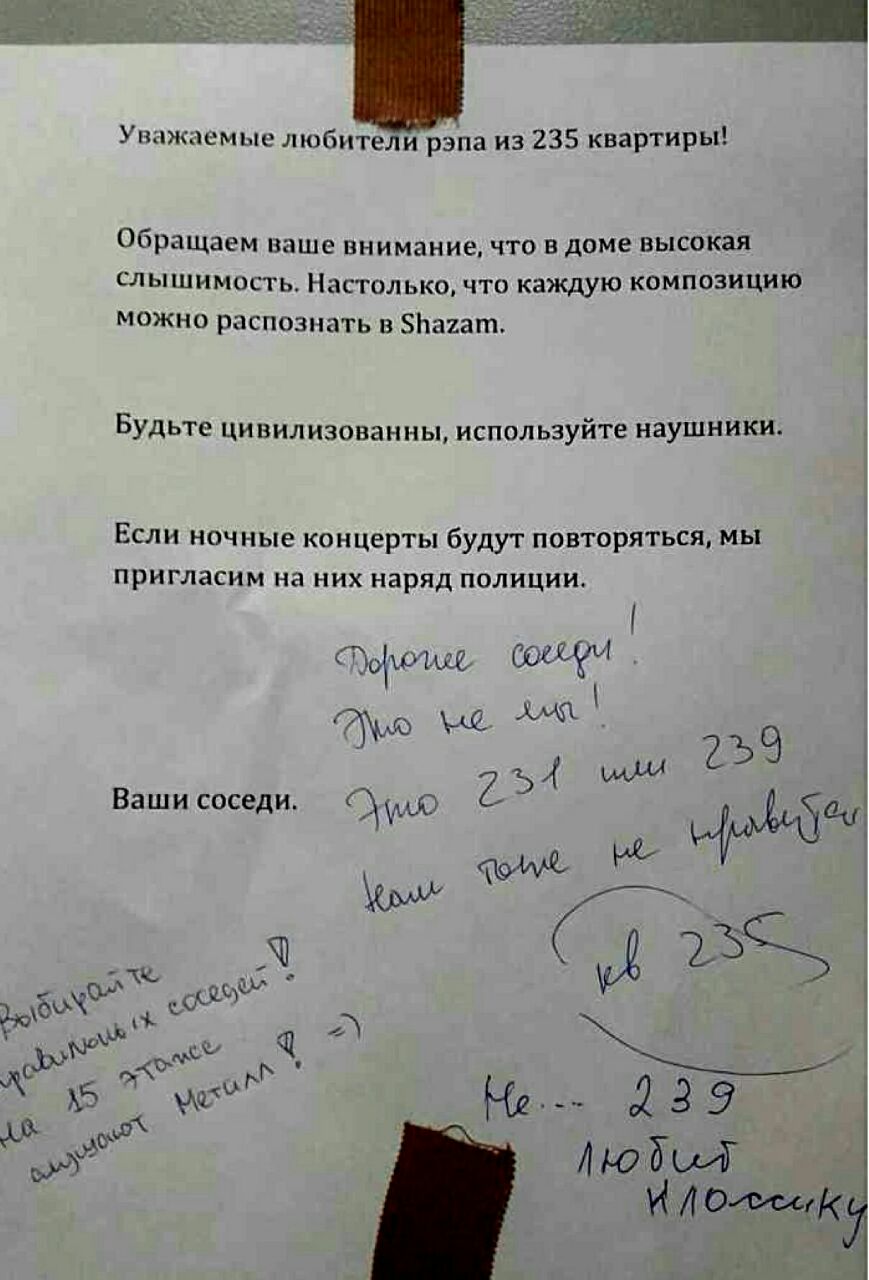 Уважаемые любители рэпа из 235 квартиры!
Обращаем ваше внимание, что в доме высокая
слышимость. Настолько, что каждую композицию
можно распознать в Shazam.
Будьте цивилизованны, используйте наушники.
Если ночные концерты будут повторяться, мы
пригласим на них наряд полиции.
Ваши соседи.
Дорогие соседи!
Это не мы!
Это 231 или 239
Нам тоже не нравится
кв 235
Выбирайте
правильных соседей!
На 15 этаже
слушают Металл! =)
Не... 239
любит
классику